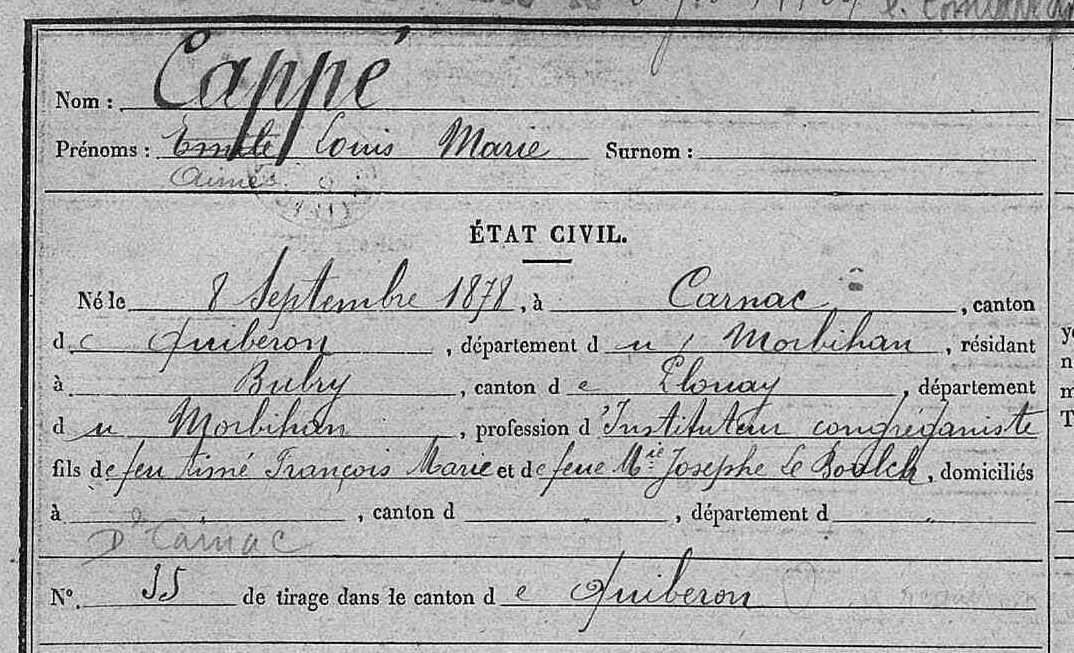 Nom : Cappé
Prénoms : Emile Louis Marie Surnom :
Aimé
ÉTAT CIVIL.
Né le 8 Septembre 1878, à Carnac, canton
de Quiberon, département du Morbihan, résidant
à Bubry, canton de Plouay, département
du Morbihan, profession d'Instituteur congréganiste
fils de feu Aimé François Marie et de feue Mie Josephe Le Boulch, domiciliés
à , canton d , département d
Dé Carnac
N°. 35 de tirage dans le canton de Quiberon